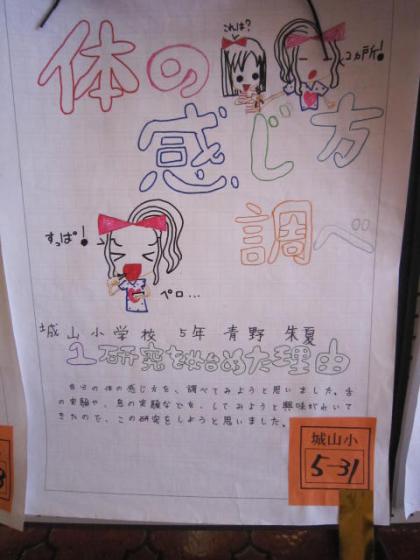 体の
これは?
2カ所!
感じ方
調べ
すっぱ!
ペロ...
城山小学校 5年 青野 朱夏
1研究を始めた理由
自分の体の感じ方を、調べてみようと思いました。舌
の実験や、鼻の実験などを、してみようと興味がわいて
きたので、この研究をしようと思いました。
城山小
5-31